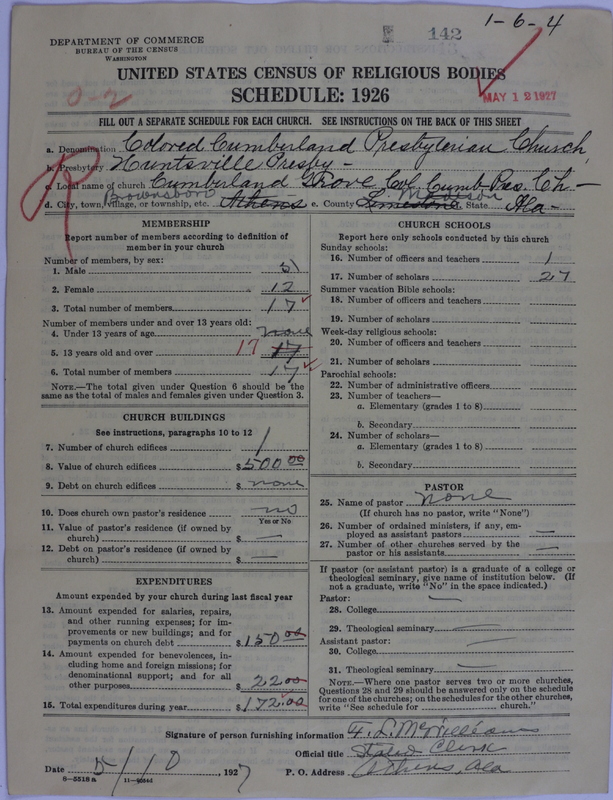 1-6-4
142
DEPARTMENT OF COMMERCE
BUREAU OF THE CENSUS
WASHINGTON
UNITED STATES CENSUS OF RELIGIOUS BODIES
SCHEDULE: 1926
MAY 12 1927
0-2
FILL OUT A SEPARATE SCHEDULE FOR EACH CHURCH. SEE INSTRUCTIONS ON THE BACK OF THIS SHEET
a. Denomination Colored Cumberland Presbyterian Church
b. Presbytery Huntsville Presby-
c. Local name of church Cumberland Grove Col. Cumb-Pres. Ch-
Brownsboro Madison
d. City, town, village, or township, etc. Athens e. County Limestone, State Ala-
MEMBERSHIP
Report number of members according to definition of member in your church
Number of members, by sex:
1. Male 5
2. Female 12
3. Total number of members 17
Number of members under and over 13 years old:
4. Under 13 years of age none
5. 13 years old and over 17 17
6. Total number of members 17
NOTE.—The total given under Question 6 should be the same as the total of males and females given under Question 3.
CHURCH BUILDINGS
See instructions, paragraphs 10 to 12
7. Number of church edifices 1
8. Value of church edifices $500 00
9. Debt on church edifices $ none
10. Does church own pastor's residence no
Yes or No
11. Value of pastor's residence (if owned by church) $ —
12. Debt on pastor's residence (if owned by church) $ —
EXPENDITURES
Amount expended by your church during last fiscal year
13. Amount expended for salaries, repairs, and other running expenses; for improvements or new buildings; and for payments on church debt $150 00
14. Amount expended for benevolences, including home and foreign missions; for denominational support; and for all other purposes $22 00
15. Total expenditures during year $172.00
CHURCH SCHOOLS
Report here only schools conducted by this church
Sunday schools:
16. Number of officers and teachers 1
17. Number of scholars 27
Summer vacation Bible schools:
18. Number of officers and teachers
19. Number of scholars
Week-day religious schools:
20. Number of officers and teachers
21. Number of scholars
Parochial schools:
22. Number of administrative officers
23. Number of teachers—
a. Elementary (grades 1 to 8)
b. Secondary
24. Number of scholars—
a. Elementary (grades 1 to 8)
b. Secondary
PASTOR
25. Name of pastor none
(If church has no pastor, write "None")
26. Number of ordained ministers, if any, employed as assistant pastors —
27. Number of other churches served by the pastor or his assistants —
If pastor (or assistant pastor) is a graduate of a college or theological seminary, give name of institution below. (If not a graduate, write "No" in the space indicated.)
Pastor:
28. College —
29. Theological seminary —
Assistant pastor:
30. College —
31. Theological seminary —
NOTE.—Where one pastor serves two or more churches, Questions 28 and 29 should be answered only on the schedule for one of the churches; on the schedules for the other churches, write "See schedule for church."
Signature of person furnishing information F. L. McWilliams
Official title Stated Clerk
Date 5/10, 1927 P. O. Address Athens, Ala
8-5518 a